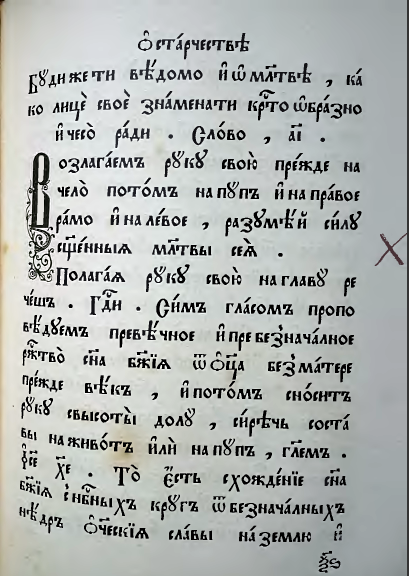 Ѡ҆ ста́рчествѣ
Бꙋ́ди же тѝ вѣ́домо и҆ ѡ҆ мл҃твѣ , ка
ко лицѐ своѐ зна́менати крⷭ҇тоѡ҆бра́зно
и҆ чесо̀ ра́ди . Сло́во , а҃і .
Возлага́емъ рꙋ́кꙋ свою̀ пре́жде на
чело̀ пото́мъ на пꙋ́пъ и҆ на пра́вое
ра́мо и҆ на ле́вое , разꙋмѣ́й си́лꙋ
сщ҃е́нныѧ мл҃твы сеѧ̀ .
Полага́ѧ рꙋ́кꙋ свою̀ на главꙋ̀ ре
че́шъ . Гдⷭ҇и . Си́мъ гла́сомъ пропо
вѣ́дꙋемъ превѣ́чное и҆ пребезнача́лное
ржⷭ҇тво̀ сн҃а бж҃їѧ ѿ ѻ҆ц҃а̀ без̾ ма́тере
пре́жде вѣ́къ , и҆ пото́мъ сно́ситъ
рꙋ́кꙋ свысоты̀ до́лꙋ , си́рѣчь соста
вы̀ на живо́тъ и҆лѝ на пꙋ́пъ , гл҃емъ .
І҆и҃се хрⷭ҇те . То̀ є҆́сть схожде́нїе сн҃а
бж҃їѧ с нбⷭ҇ныхъ крꙋ́гъ ѿ безнача́лныхъ
нѣ́дръ ѻ҆́ч҃ескїѧ сла́вы на зе́млю и҆